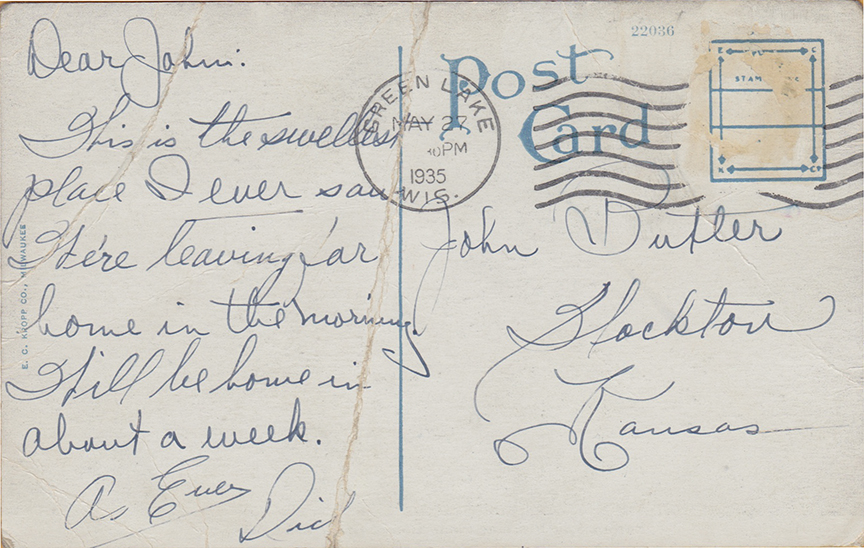 Dear John:
This is the swellest
place I ever saw
We're leaving for
home in the morning.
Will be home in
about a week.
As Ever
Dick
E. C. KROPP CO., MILWAUKEE
Post
Card
22036
GREEN LAKE
MAY 27
PM
1935
WIS.
John Butler
Stockton
Kansas